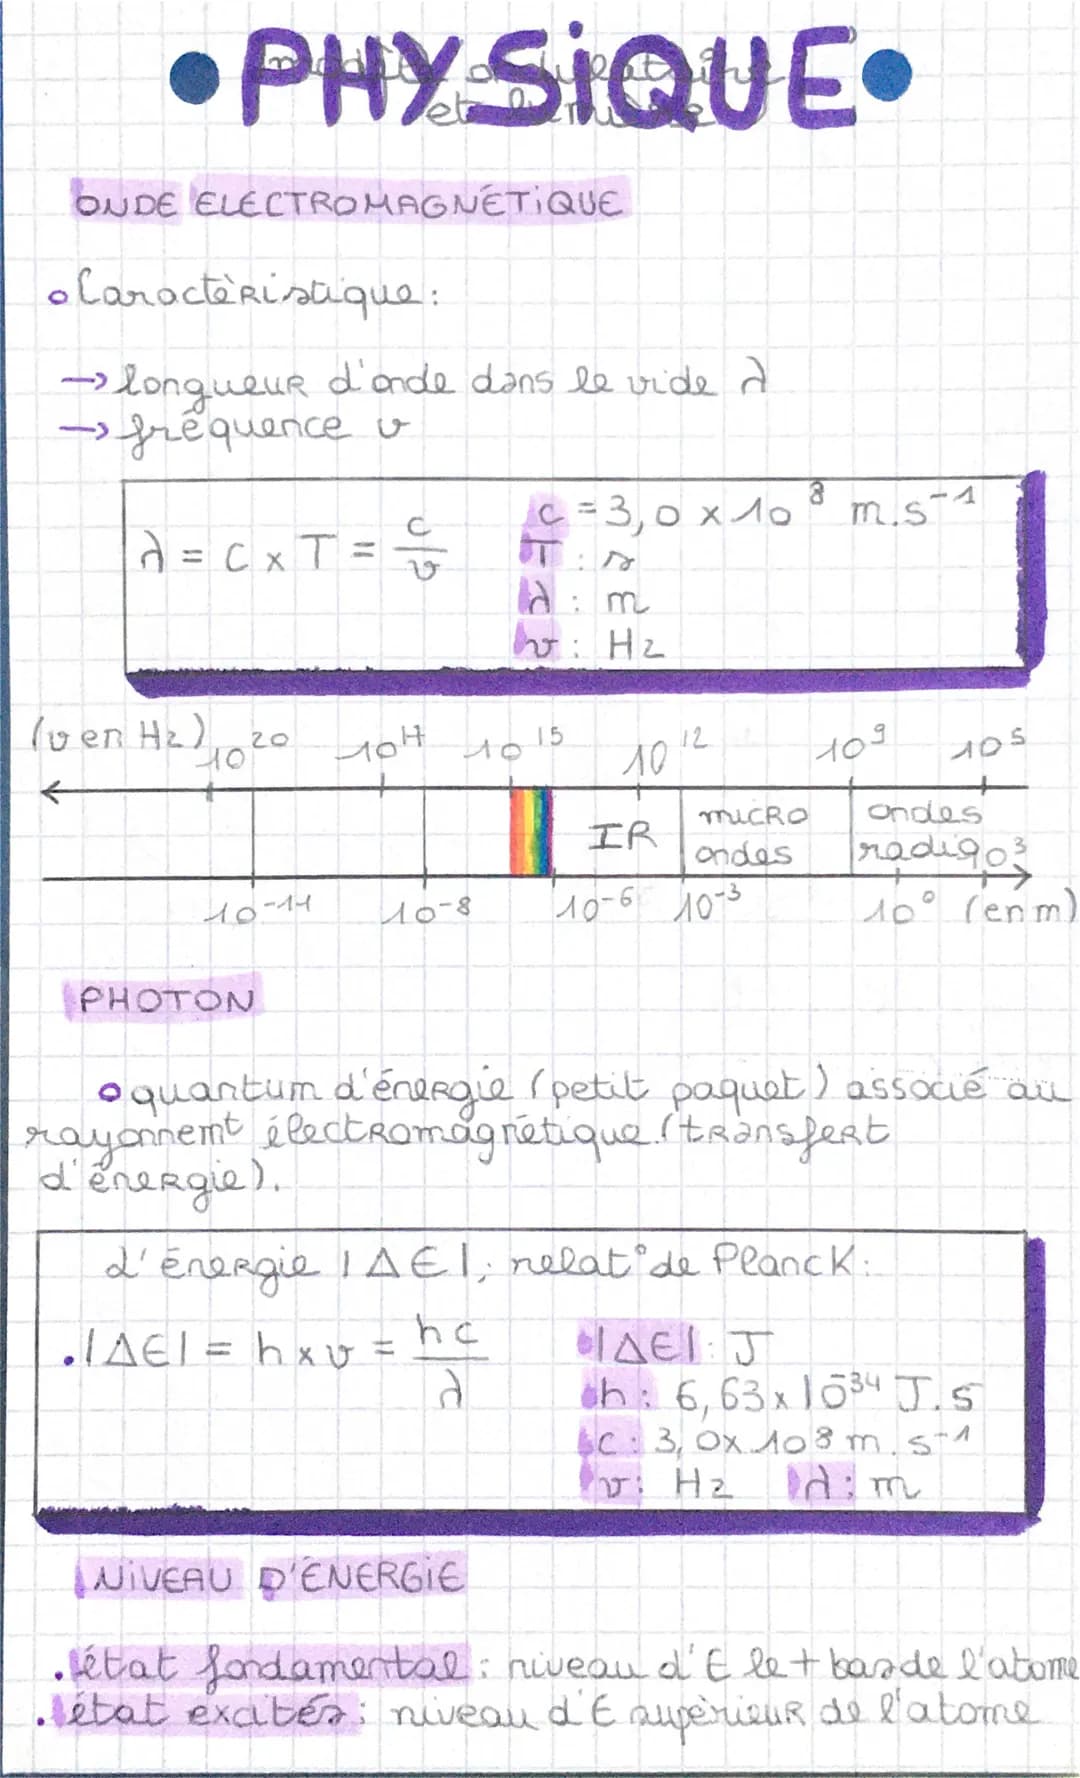 • PHYSiQUE •
modèle ondulatoire
et lumière
ONDE ELECTROMAGNÉTiQUE
Caractèristique:
→ longueur d'onde dans le vide λ
→ fréquence ν
λ = C x T = c/ν
c = 3,0 x 10⁸ m.s⁻¹
T : s
λ : m
ν : Hz
(ν en Hz) 10²⁰ 10¹⁷ 10¹⁵ 10¹² 10⁹ 10⁵
IR micro ondes ondes radio 10³
10⁻¹¹ 10⁻⁸ 10⁻⁶ 10⁻³ 10⁰ (en m)
PHOTON
quantum d'énergie (petit paquet) associé au
rayonnemt électromagnétique (transfert
d'énergie).
d'énergie |ΔE|; relat° de Planck:
. |ΔE| = h x ν = hc/λ
|ΔE| : J
h : 6,63 x 10⁻³⁴ J.s
c : 3,0x 108 m.s⁻¹
ν : Hz λ : m
NiVEAU D'ÉNERGiE
. état fondamental : niveau d'E le + bas de l'atome
. état excités : niveau d'E supèrieur de l'atome